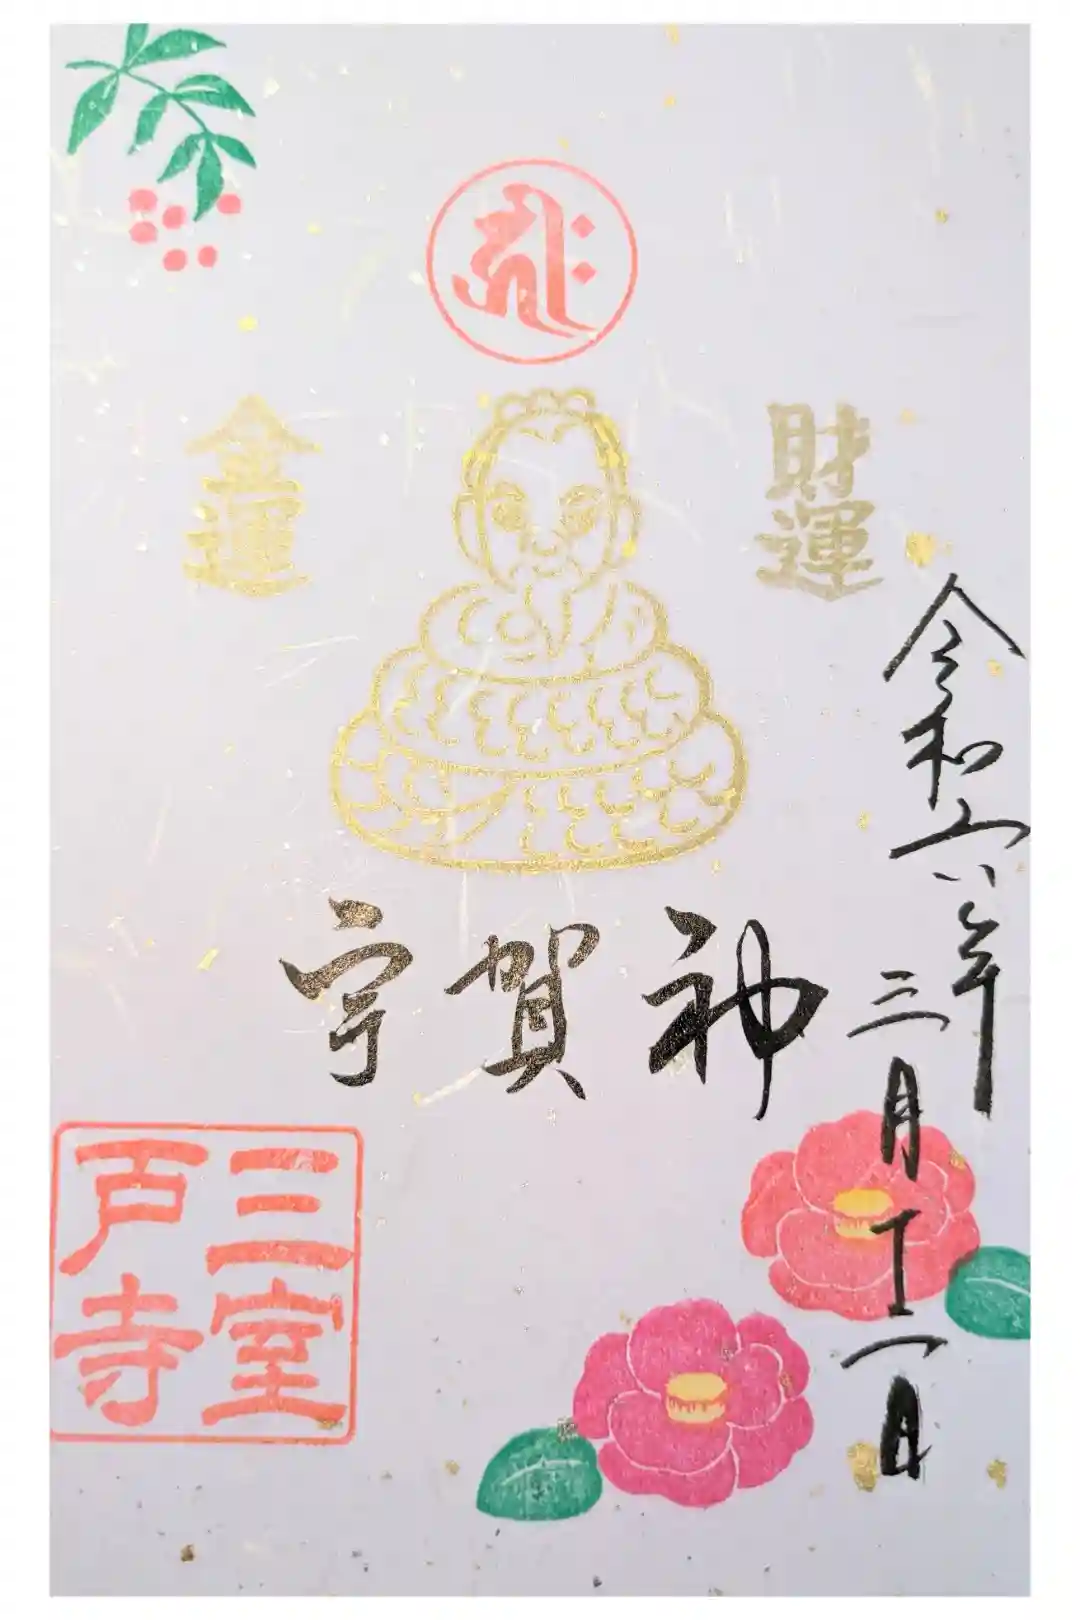 金運
財運
宇賀神
令和六年
三月十一日
三室
戸寺